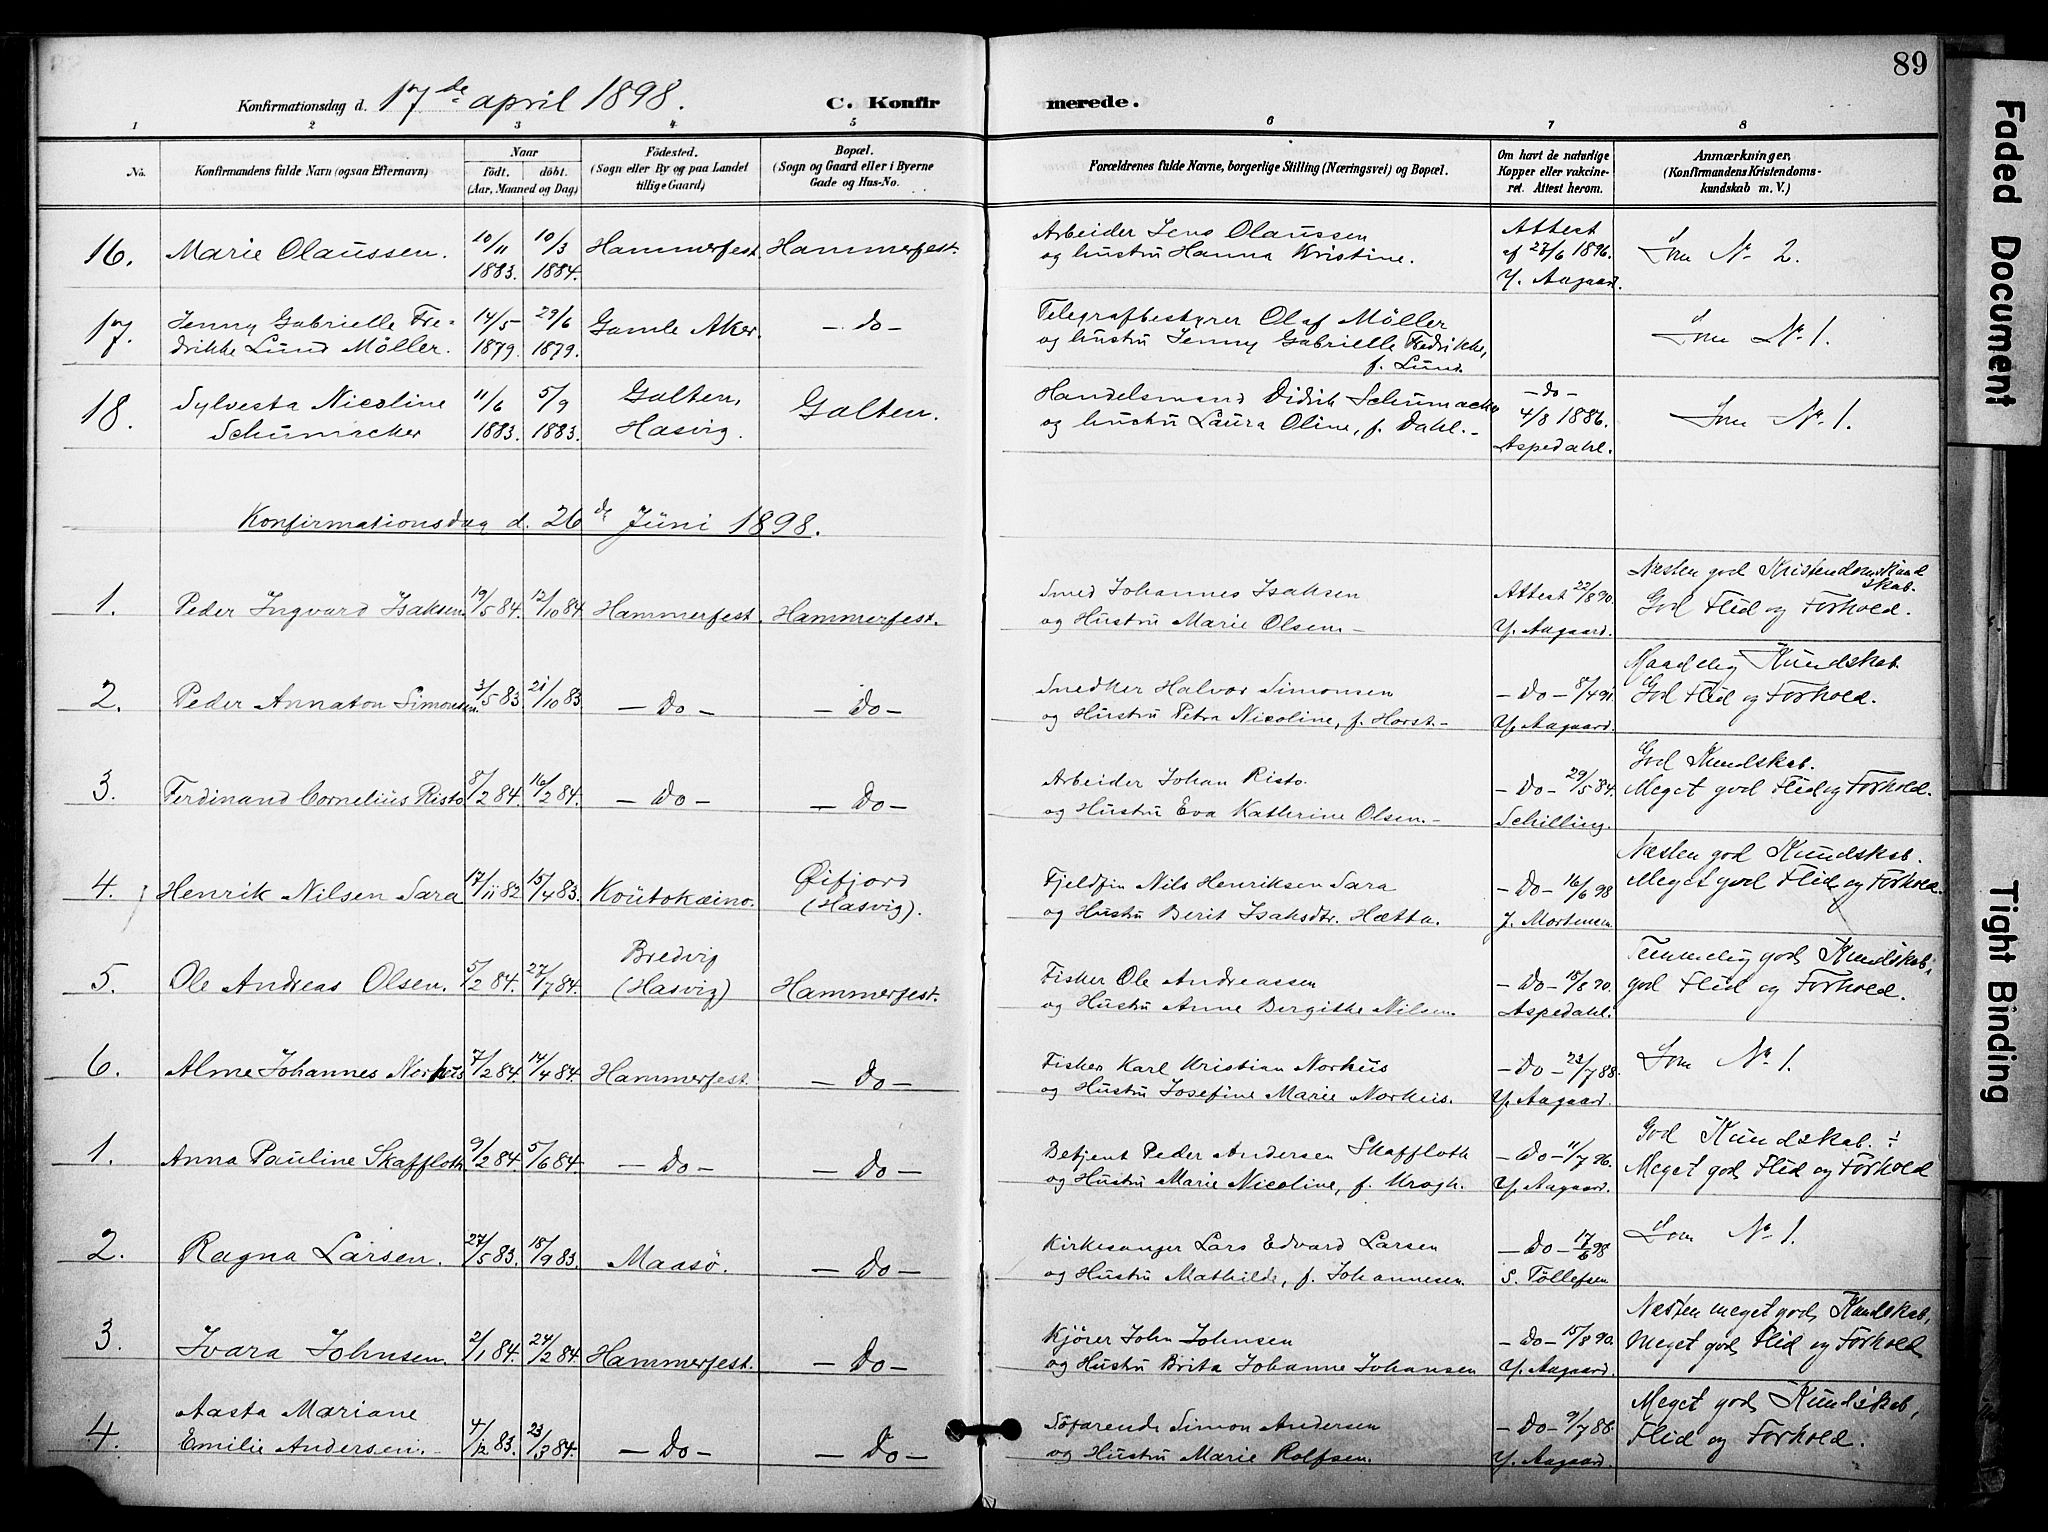 89
Konfirmationsdag d. 17de april 1898. C. Konfirmerede.
1 2 3 4 5 6 7 8
No. Konfirmandens fulde Navn (ogsaa Efternavn) Naar födt. döbt. (Aar, Maaned og Dag)
Födested. (Sogn eller By og paa Landet tillige Gaard)
Bopæl. (Sogn og Gaard eller i Byerne Gade og Hus-No.
Forældrenes fulde Navne, borgerlige Stilling (Næringsvei) og Bopæl.
Om havt de naturlige Kopper eller vakcineret. Attest herom.
Anmærkninger, (Konfirmandens Kristendomskundskab m. V.)
16. Marie Olaussen. 10/11 1883. 10/3 1884. Hammerfest. Hammerfest. Arbeider Jens Olaussen
og hustru Hanna Kristine. Attest af 27/6 1896. Y. Aagaard. Som No 2.
17. Jenny Gabrielle Fredrikke Lund Möller. 14/5 1879. 29/6 1879. Gamle Aker. - do - Telegrafbestyrer Olaf Möller
og hustru Jenny Gabrielle Fredrikke, f. Lund. Som No 1.
18. Sylvesta Nicoline Schumacker 11/6 1883. 5/9 1883. Galten, Hasvig. Galten. Handelsmand Didrik Schumacker
og hustru Laura Oline, f. Dahl. - - do - 4/8 1886. Aspedahl. Som No 1.
Konfirmationsdag d. 26de Juni 1898.
1. Peder Ingvard Isaksen 19/5 84. 12/10 84. Hammerfest. Hammerfest. Smed Johannes Isaksen
og Hustru Marie Olsen. - Attest 22/8 90. Y. Aagaard. Næsten god Kristendomskundskab.
God Flid og Forhold.
2. Peder Annaton Simonsen. 3/5 83. 21/10 83. - Do - - Do - Snedker Halvor Simonsen
og Hustru Petra Nicoline, f. Horst. - - Do - 8/4 91. Y. Aagaard. Maadelig Kundskab.
God Flid og Forhold.
3. Ferdinand Cornelius Risto 8/2 84. 16/2 84. - Do - - Do - Arbeider Johan Risto.
og Hustru Eva Kathrine Olsen. - - Do - 29/5 84. Schilling. God Kundskab.
Meget god Flid og Forhold.
4. Henrik Nilsen Sara 17/11 82. 15/4 83. Koutokæino. Øifjord (Hasvig). Fjeldfin Nils Henriksen Sara
og Hustru Berit Isaksdtr. Hætta. - Do - 16/6 98 J. Mortensen Næsten god Kundskab.
Meget god Flid og Forhold.
5. Ole Andreas Olsen. 5/2 84. 27/7 84. Bredvig (Hasvig) Hammerfest. Fisker Ole Andreassen
og Hustru Anne Bergithe Nilsen. - Do - 15/8 90. Aspedahl. Temmelig god Kundskab,
god Flid og Forhold.
6. Alme Johannes Norhus 7/2 84. 14/4 84. Hammerfest. - Do - Fisker Karl Kristian Norhus
og Hustru Josefine Marie Norhus. - Do - 23/7 88. Y. Aagaard. Som No 1.
1. Anna Pauline Skaffloth 9/2 84. 5/6 84. - Do - - Do - Betjent Peder Andersen Skaffloth
og Hustru Marie Nicoline, f. Krogh. - Do - 11/7 96. Y. Aagaard. God Kundskab. ÷
Meget god Flid og Forhold
2. Ragna Larsen. 27/5 83. 15/9 83. Maasö. - Do - Kirkesanger Lars Edvard Larsen
og Hustru Mathilde, f. Johannesen - Do - 17/6 98 S. Tollefsen Som No 1.
3. Ivara Johnsen. 2/1 84. 24/2 84. Hammerfest. - Do - Kjörer John Johnsen
og Hustru Brita Johanne Johansen - Do - 15/8 90. Y. Aagaard. Næsten meget god Kundskab,
Meget god Flid og Forhold
4. Aasta Mariane Emilie Andersen. - 4/12 83. 23/3 84. - Do - - Do - Söfarende Simon Andersen
og Hustru Marie Rolfsen. - Do - 9/7 88. Y. Aagaard. Meget god Kundskab,
Flid og Forhold.
Faded Document
Tight Binding